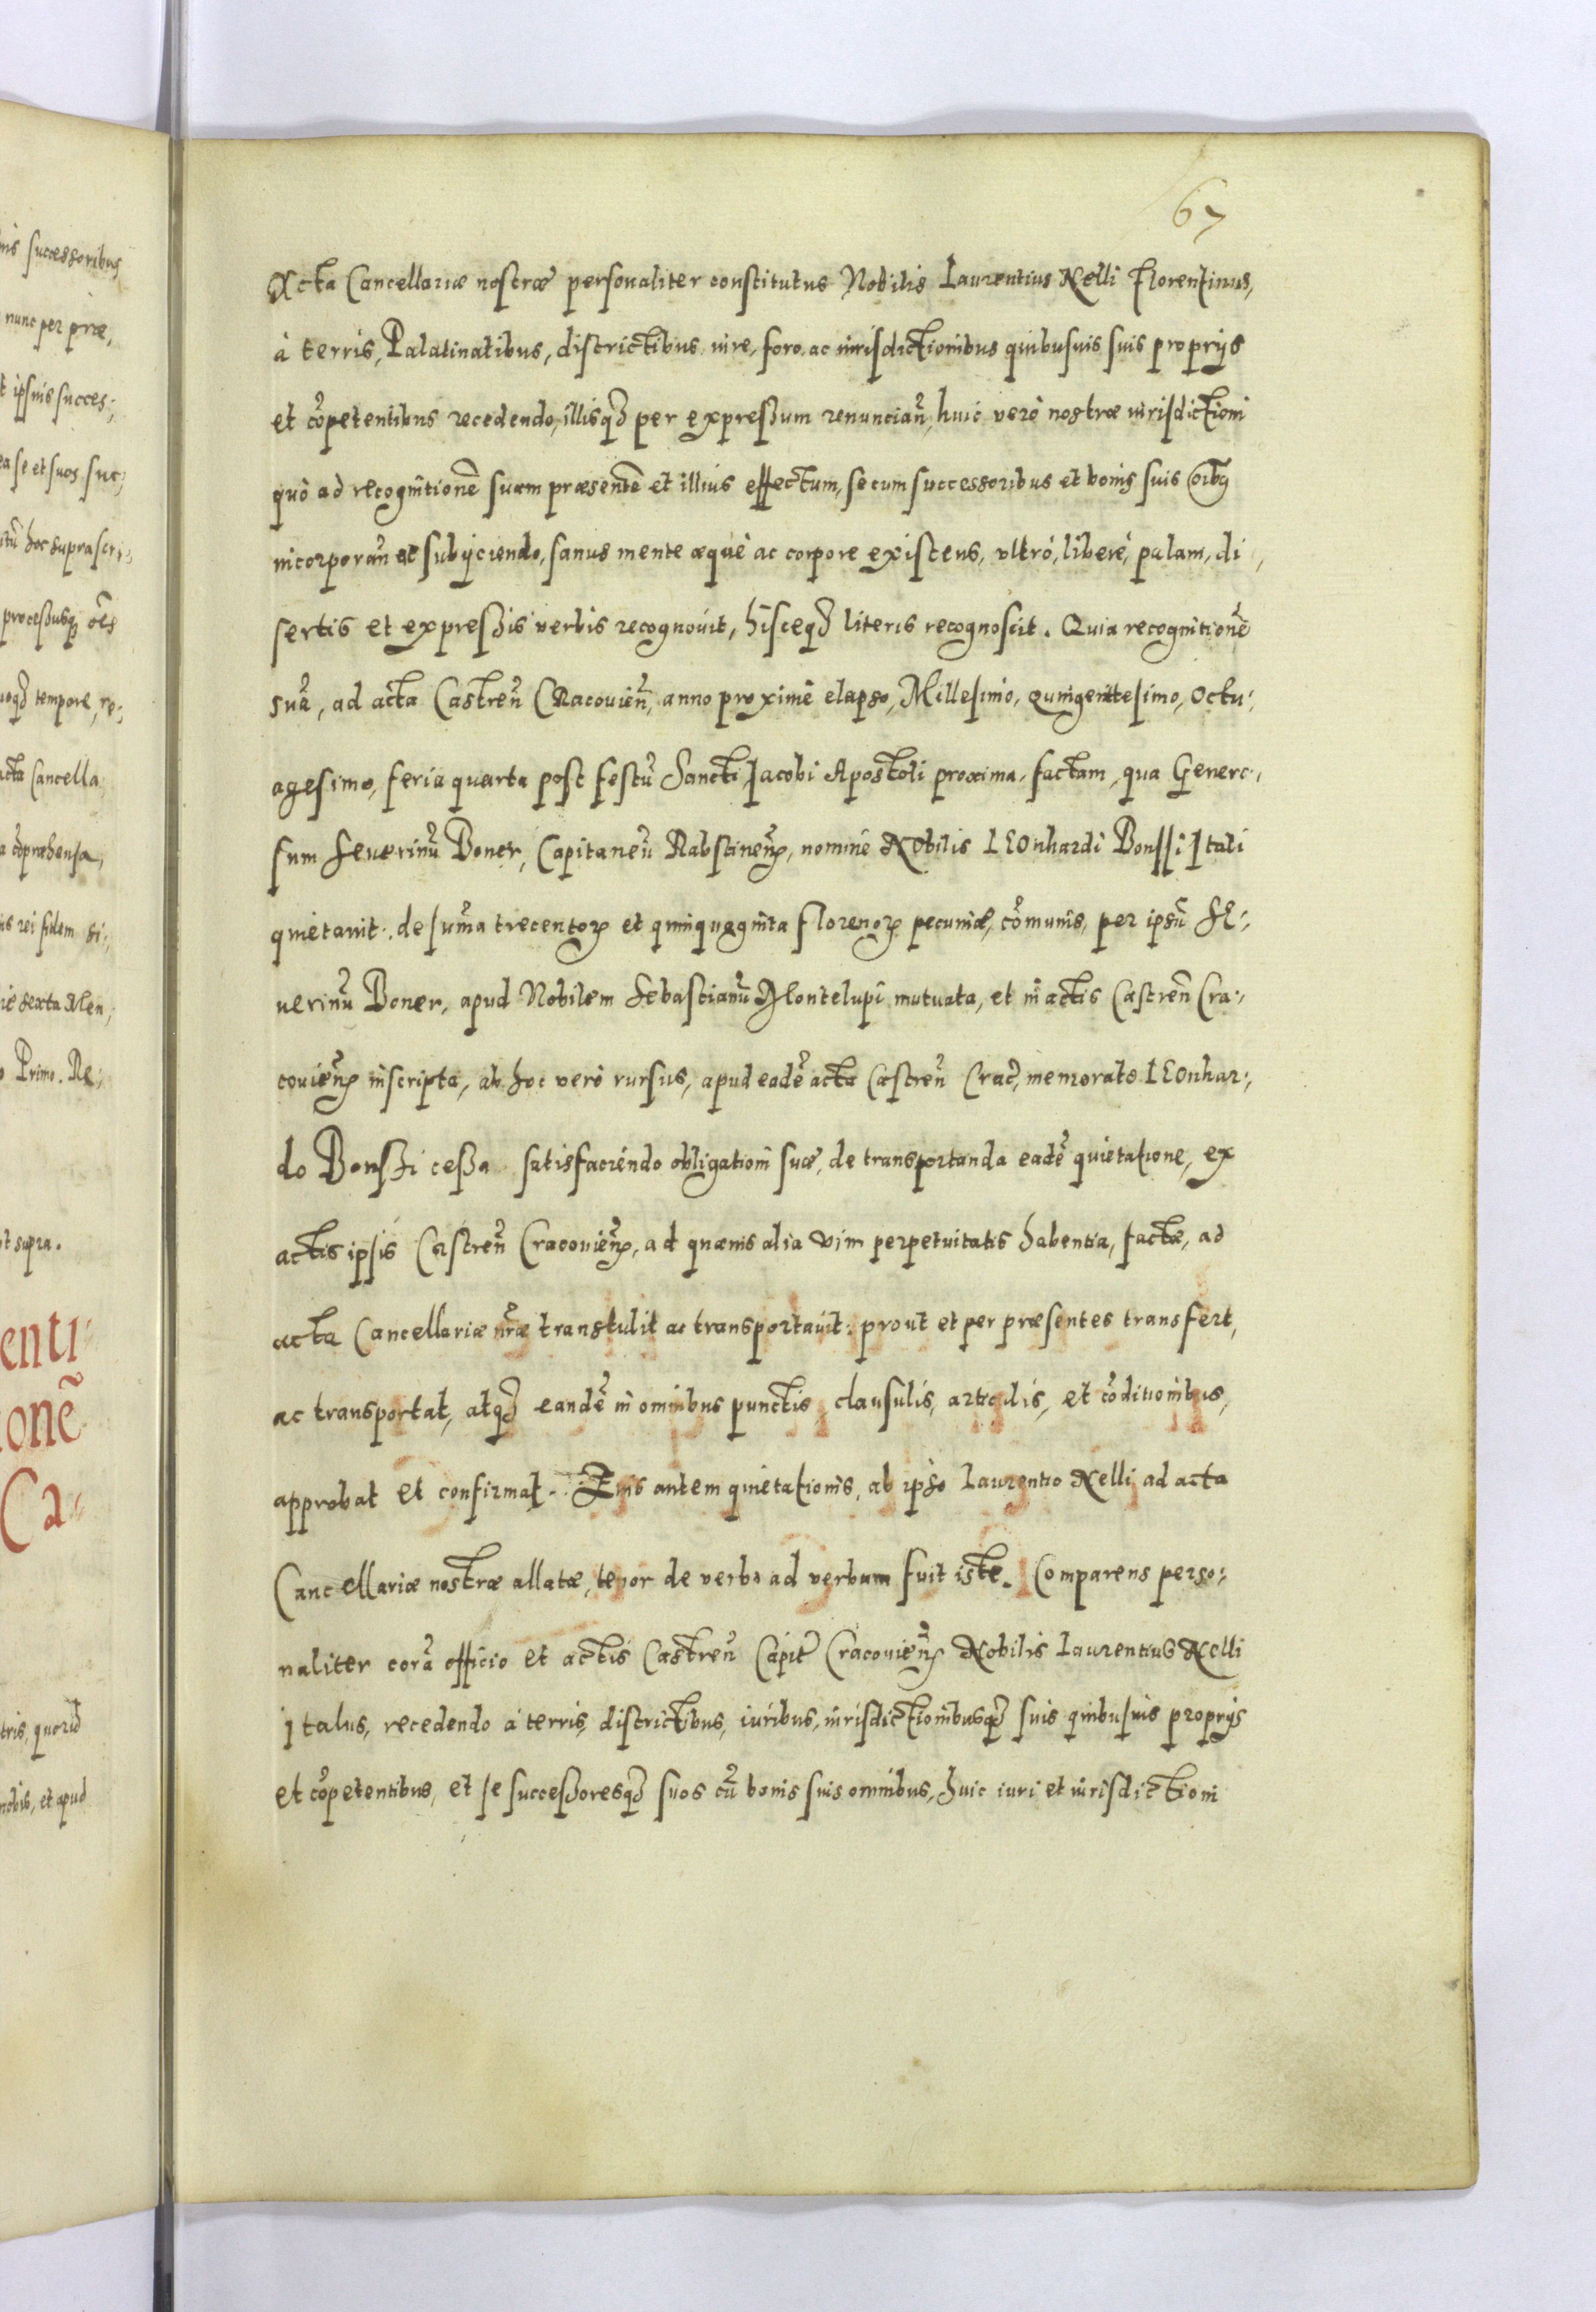 67
Acta Cancellariæ nostræ personaliter constitutus Nobilis Laurentius Nelli Florentinus,
à terris, Palatinatibus, districtibus iure, foro, ac iurisdictionibus quibusuis suis proprijs
et cõpetentibus recedendo, illisq₃ per expreßum renuncian̄, huic verò nostræ iurisdictioni
quò ad recognitionẽ suam præsentẽ et illius effectum, se cum successoribus et bonis suis oĩbꝰ
incorporan̄ et subijciendo, sanus mente æquè ac corpore existens, vltrò, liberè, palam, di,
sertis et expreßis verbis recognouit, hisceq₃ literis recognoscit. Quia recognitionẽ
suã, ad acta Castren̄ Cracouien̄, anno proximè elapso, Millesimo, quingentesimo, Octu:
agesimo, feria quarta post festũ Sancti Jacobi Apostoli proxima, factam, qua Genero:
sum Seuerinũ Boner, Capitaneũ Rabstinen̄, nomine Nobilis Leonhardi Bonssi Itali
quietauit, de sum̃a trecentoꝝ et quinquaginta florenoꝝ pecuniæ, cõmunis, per ipsũ Se:
uerinũ Boner, apud Nobilem Sebastianũ Montelupi mutuata, et in actis Castren̄ Cra:
couien̄ inscripta, ab hoc verò rursus, apud eadẽ acta Castren̄ Crac̃, memorato Leonhar:
do Bonßi ceßa satisfaciendo obligationi suæ, de transportanda eadẽ quietatione, ex
actis ipsis Castren̄ Cracouien̄, ad quæuis alia vim perpetuitatis habentia, factæ, ad
acta Cancellariæ nr̃æ transtulit ac transportauit: prout et per præsentes transfert,
ac transportat, atq₃ eandẽ in omnibus punctis, clausulis, articulis, et cõditionibus,
approbat et confirmat. Eius autem quietationis, ab ipso Laurentio Nelli ad acta
Cancellariæ nostræ allatæ, tenor de verbo ad verbum fuit iste. Comparens perso:
naliter corã officio et actis Castren̄ Capit̃ Cracouien̄ Nobilis Laurentius Nelli
Italus, recedendo à terris, districtibus, iuribus, iurisdictionibusq₃ suis quibusuis proprijs
et cõpetentibus, et se succeßoresq₃ suos cũ bonis suis omnibus, huic iuri et iurisdictioni